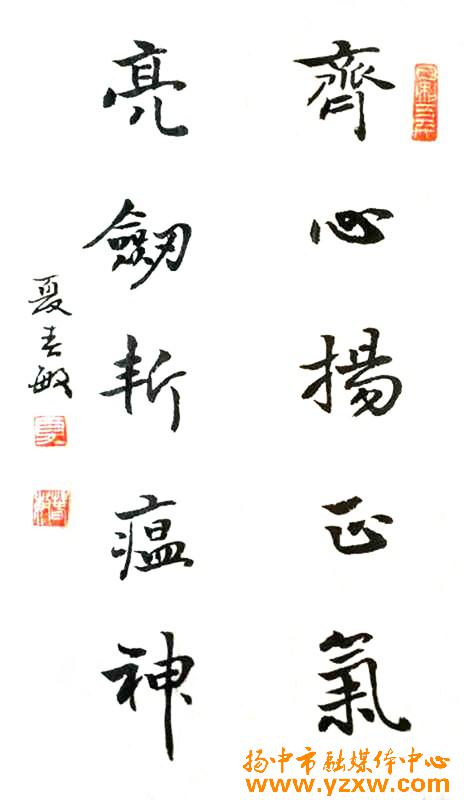 齊心揚正氣
亮劒斬瘟神
夏春敏
扬中市融媒体中心
www.yzxw.com